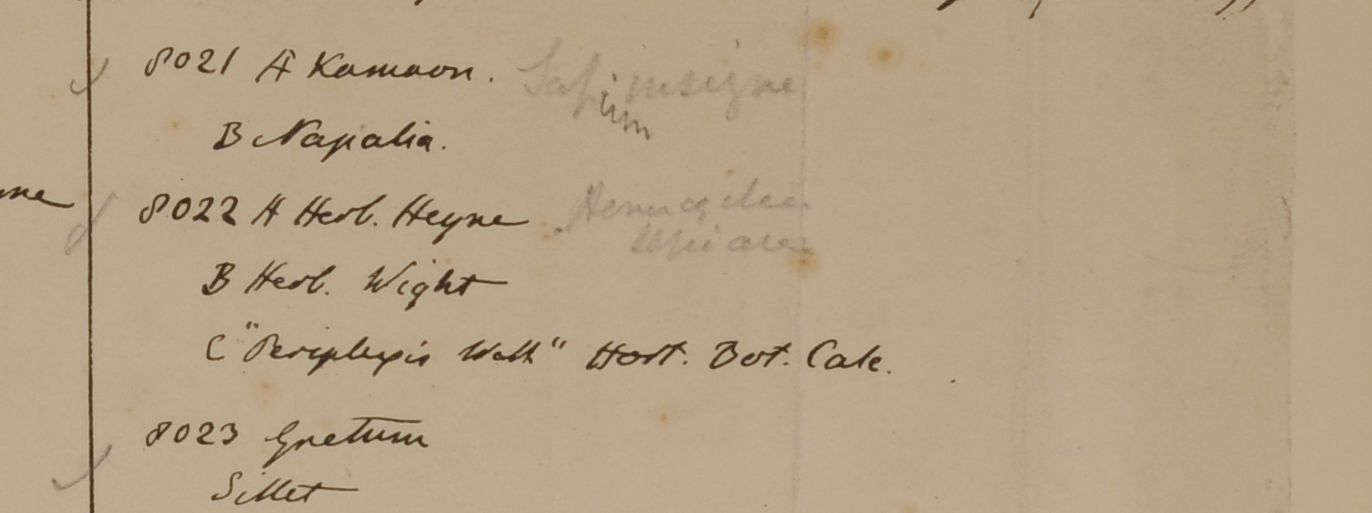 8021 A Kamaon. Sapium insigne
B Napalia.
8022 A Herb. Heyne Hemicyclia
sepiaria
B Herb. Wight
C "Periplexis Wall" Hort. Bot. Calc.
8023 Gnetum
Sillet